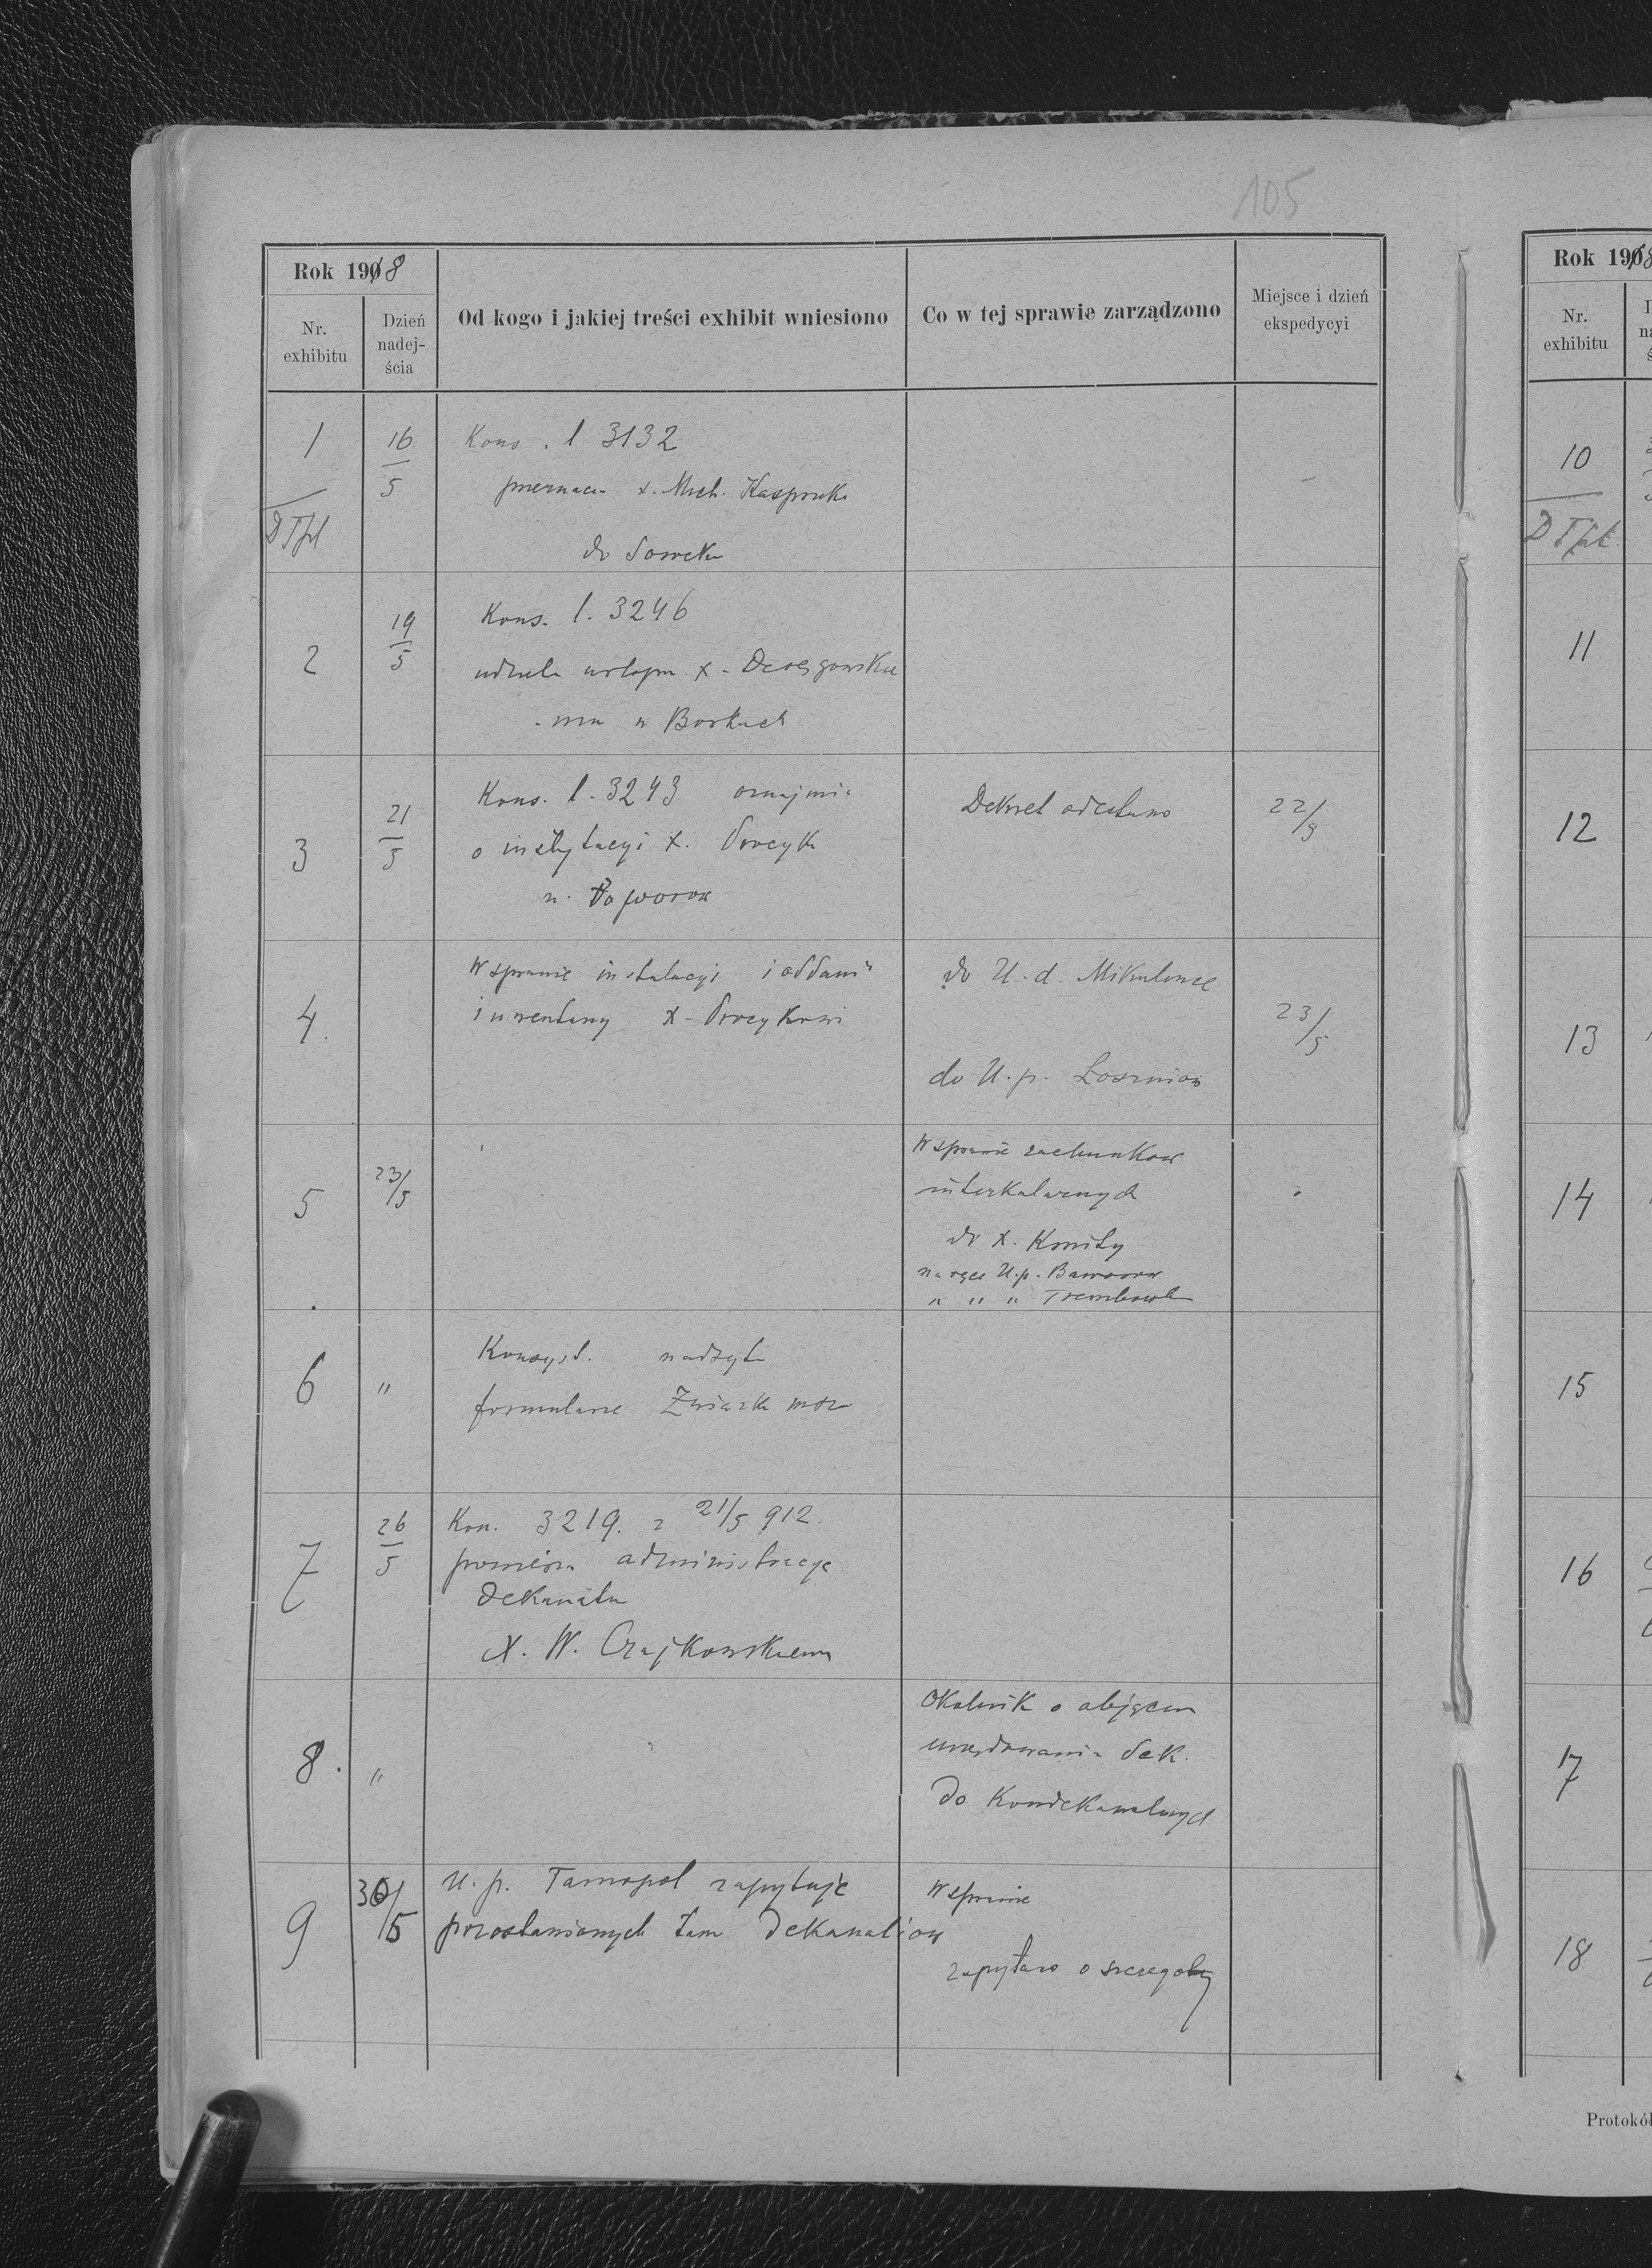 105
Rok 1918
Nr. exhibitu
Dzień nadej- ścia
Od kogo i jakiej treści exhibit wniesiono
Co w tej sprawie zarządzono
Miejsce i dzień ekspedycyi
1
DTpl
16/5
Kons. l 3132
x. Mich. Kaspruka
do
2
19/5
Kons. l. 3246
udziela urlopu x.
-mu w Borkach
3
21/5
Kons. l. 3243 oznajmia
o instytucyi x. Procyk
n.
Dekret odesłano
22/5
4.
W sprawie instalacyi i oddania
inwentarzy x. Procykowi
do U. d. Mikulińce
do U. p. Łoszniów
23/5
5
23/5
W sprawie rachunków
interkalarnych
do x.
na ręce U.p. Baworów
" " " Trembowla
6
"
Konsyst. nadsyła
formularze Związku msz
7
26/5
Kon. 3219. z 21/5 912.
powierza administracyę
Dekanatu
X. W. Czajkowskiemu
8.
"
Okólnik o objęciu
urzędowania dek.
do Kondekanalnych
9
30/5
U. p. Tarnopol zapytuje
pozostawionych tam Dekanaliów
W sprawie
zapytano o szczegóły
Rok 1918
Nr. exhibitu
10
DTpl.
11
12
13
14
15
16
17
18
Protokół